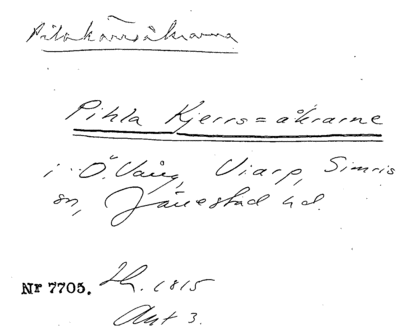 Pilakärrsåkrarna
Pihla Kjerrs=åkrarne
i Ö. Vång, Viarp, Simris
sn, Järrestad hd.
Nr 7705. Sk. 1815
Akt 3.